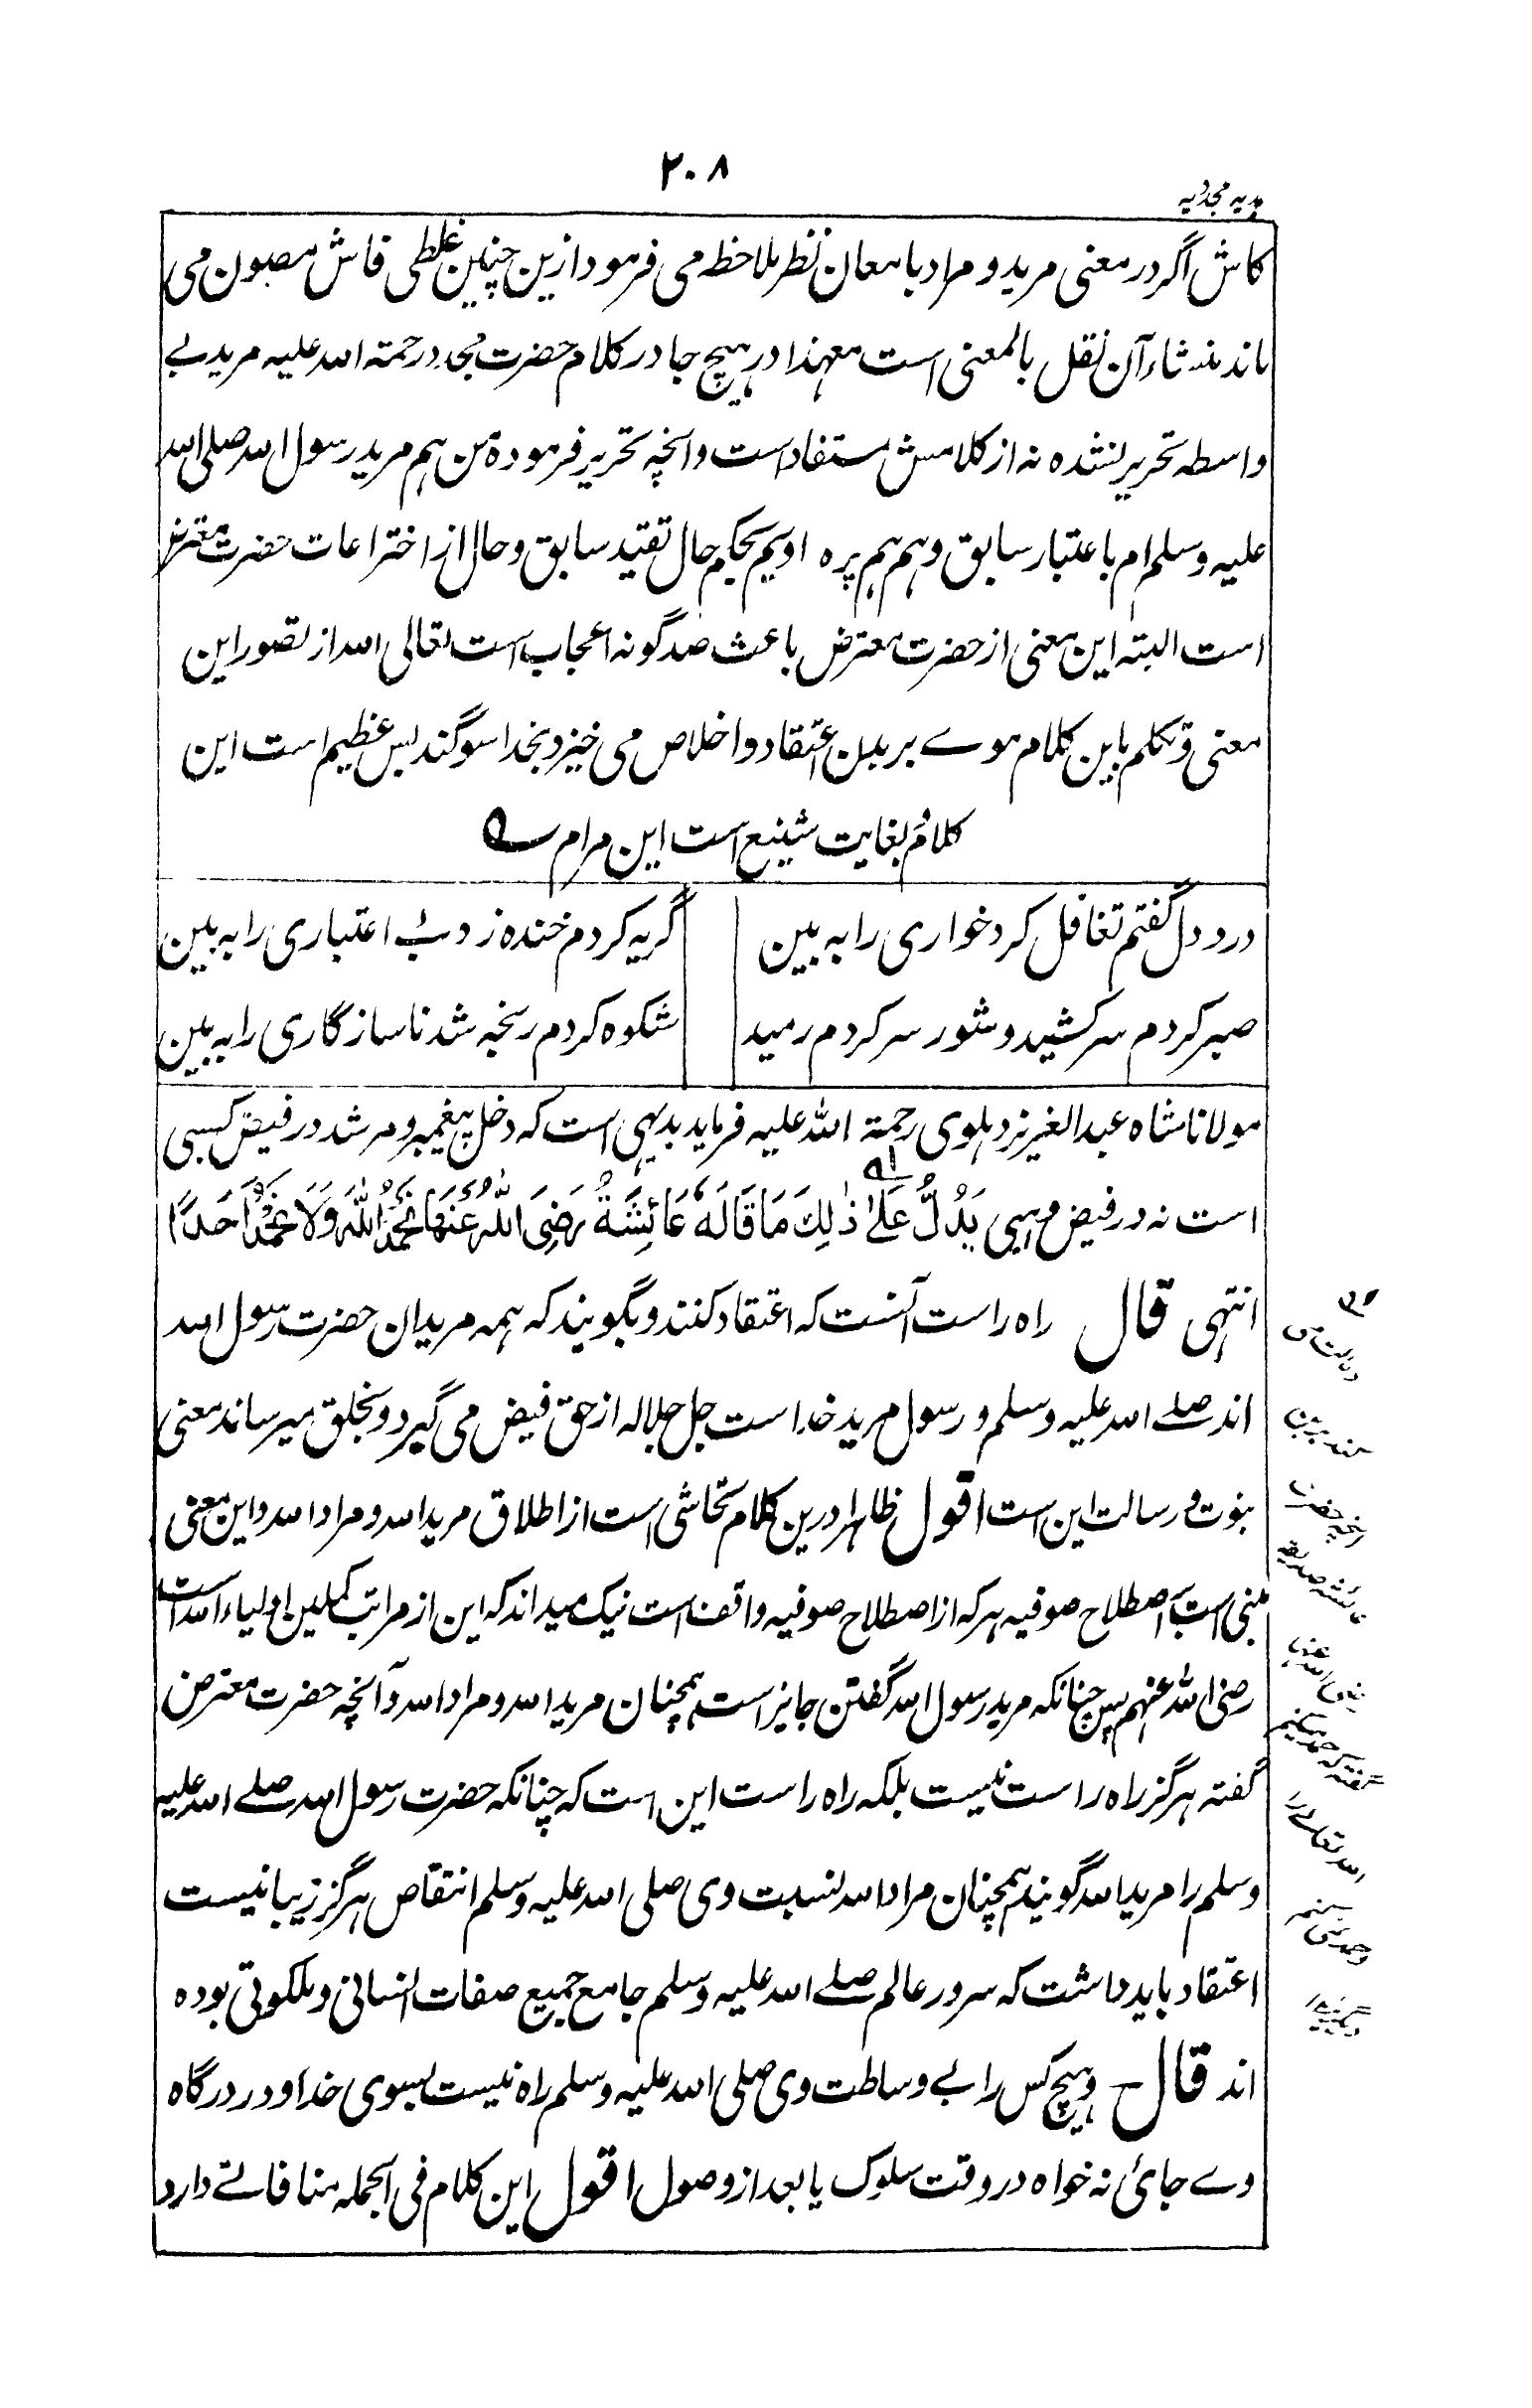 ۲۰۸
ہدیہ مجددیہ
کاش اگر در معنی مرید و مراد بامعان نظر ملاحظہ می فرمود ازین چنین غلطی فاش مصون می
ماند منشاء آن نقل بالمعنی است معہذا در ہیچ جا در کلام حضرت مجدد رحمتہ اللہ علیہ مرید بے
واسطہ تحریر نشدہ نہ از کلامش مستفاد است و آنچہ تحریر فرمودہ من ہم مرید رسول اللہ صلی اللہ
علیہ وسلم ام باعتبار سابق و ہم ہم پرہ اویم بحکم حال تقیید سابق و حال از اختراعات حضرت معترض
است البتہ این معنی از حضرت معترض باعث صد گونہ اعجاب است تعالی اللہ از تصور این
معنی و تکلم باین کلام موے بر بدن اعتقاد و اخلاص می خیزد بخدا سوگند بس عظیم است این
کلام بغایت شنیع است این مرام
درد دل گفتم تغافل کرد خواری را بہ بین
گریہ کردم خندہ زد بے اعتباری را بہ بین
صبر کردم سرکشید و شور سرکردم رمید
شکوہ کردم رنجہ شد ناسازگاری را بہ بین
مولانا شاہ عبد العزیز دہلوی رحمۃ اللہ علیہ فرماید بدیہی است کہ دخل پیغمبر و مرشد در فیض کسبی
است نہ در فیض وہبی یَدُلُّ عَلیٰ ذٰلِكَ مَا قَالَهُ عَائِشَةُ رَضِیَ اللّٰهُ عَنْهَا نَحْمَدُ اللّٰهَ وَلَا نَحْمَدُ اَحَدًا
انتہی قال راہ راست آنست کہ اعتقاد کنند و بگویند کہ ہمہ مریدان حضرت رسول اللہ
اند صلے اللہ علیہ وسلم و رسول مرید خداست جل جلالہ از حق فیض می گیرد و بخلق میرساند معنی
نبوت و رسالت این است اقول ظاہرا درین کلام تحاشی است از اطلاق مرید اللہ و مراد اللہ و این معنی
مبنی است بر اصطلاح صوفیہ ہر کہ از اصطلاح صوفیہ واقف است نیک میداند کہ این از مراتب کملین اولیاء اللہ است
رضی اللہ عنہم پس چنانکہ مرید رسول اللہ گفتن جایز است ہمچنان مرید اللہ و مراد اللہ و آنچہ حضرت معترض
گفتہ ہرگز راہ راست نیست بلکہ راہ راست این است کہ چنانکہ حضرت رسول اللہ صلے اللہ علیہ
وسلم را مرید اللہ گویند ہمچنان مراد اللہ نسبت وی صلی اللہ علیہ وسلم انتقاص ہرگز زیبا نیست
اعتقاد باید داشت کہ سرور عالم صلے اللہ علیہ وسلم جامع جمیع صفات انسانی و ملکوتی بودہ
اند قال و ہیچ کس را بے وساطت وی صلی اللہ علیہ وسلم راہ نیست بسوی خدا و در درگاہ
وے جائی نہ خواہ در وقت سلوک یا بعد از وصول اقول این کلام فی الجملہ منافاتے دارد
دلالت می
کند برین
آنچہ حضرت
عائشہ صدیقہ
رضی اللہ عنہا
گفتہ کہ حمد میکنم
اللہ تعالے را
وحمد نمی کنم
دیگری را